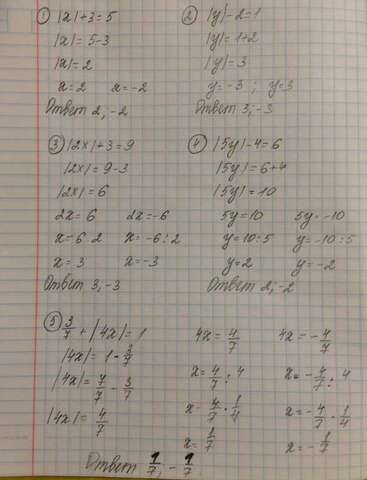 ① |x|+3=5
|x|=5-3
|x|=2
x=2 x=-2
Ответ 2,-2
② |y|-2=1
|y|=1+2
|y|=3
y=-3; y=3
Ответ 3,-3
③ |2x|+3=9
|2x|=9-3
|2x|=6
2x=6 2x=-6
x=6 2 x=-6:2
x=3 x=-3
Ответ 3,-3
④ |5y|-4=6
|5y|=6+4
|5y|=10
5y=10 5y=-10
y=10:5 y=-10:5
y=2 y=-2
Ответ 2,-2
⑤ 3/7 + |4x|=1
|4x|=1-3/7
|4x|=7/7-3/7
|4x|=4/7
4x=4/7 4x=-4/7
x=4/7:4 x=-4/7:4
x=4/7·1/4 x=-4/7·1/4
x=1/7 x=-1/7
Ответ 1/7,-1/7